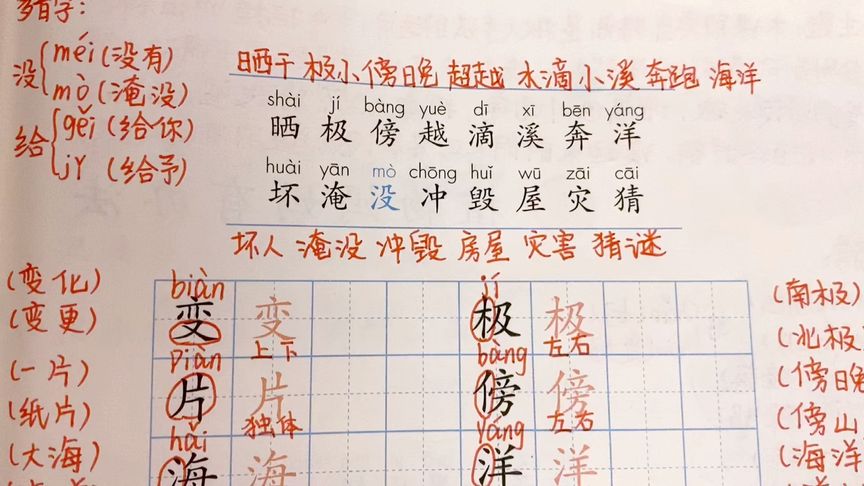 多音字:
没 méi (没有)
mò (淹没)
给 gěi (给你)
jǐ (给予)
晒干 极小 傍晚 超越 水滴 小溪 奔跑 海洋
shài jí bàng yuè dī xī bēn yáng
晒 极 傍 越 滴 溪 奔 洋
huài yān mò chōng huǐ wū zāi cāi
坏 淹 没 冲 毁 屋 灾 猜
坏人 淹没 冲毁 房屋 灾害 猜谜
(变化) biàn jí (南极)
(变更) 变 变 极 极 (北极
上下 左右
(一片) piàn bàng (傍晚
(纸片) 片 片 傍 傍 (傍山
独体 左右
(大海) hǎi yáng (海洋
海 海 洋 洋